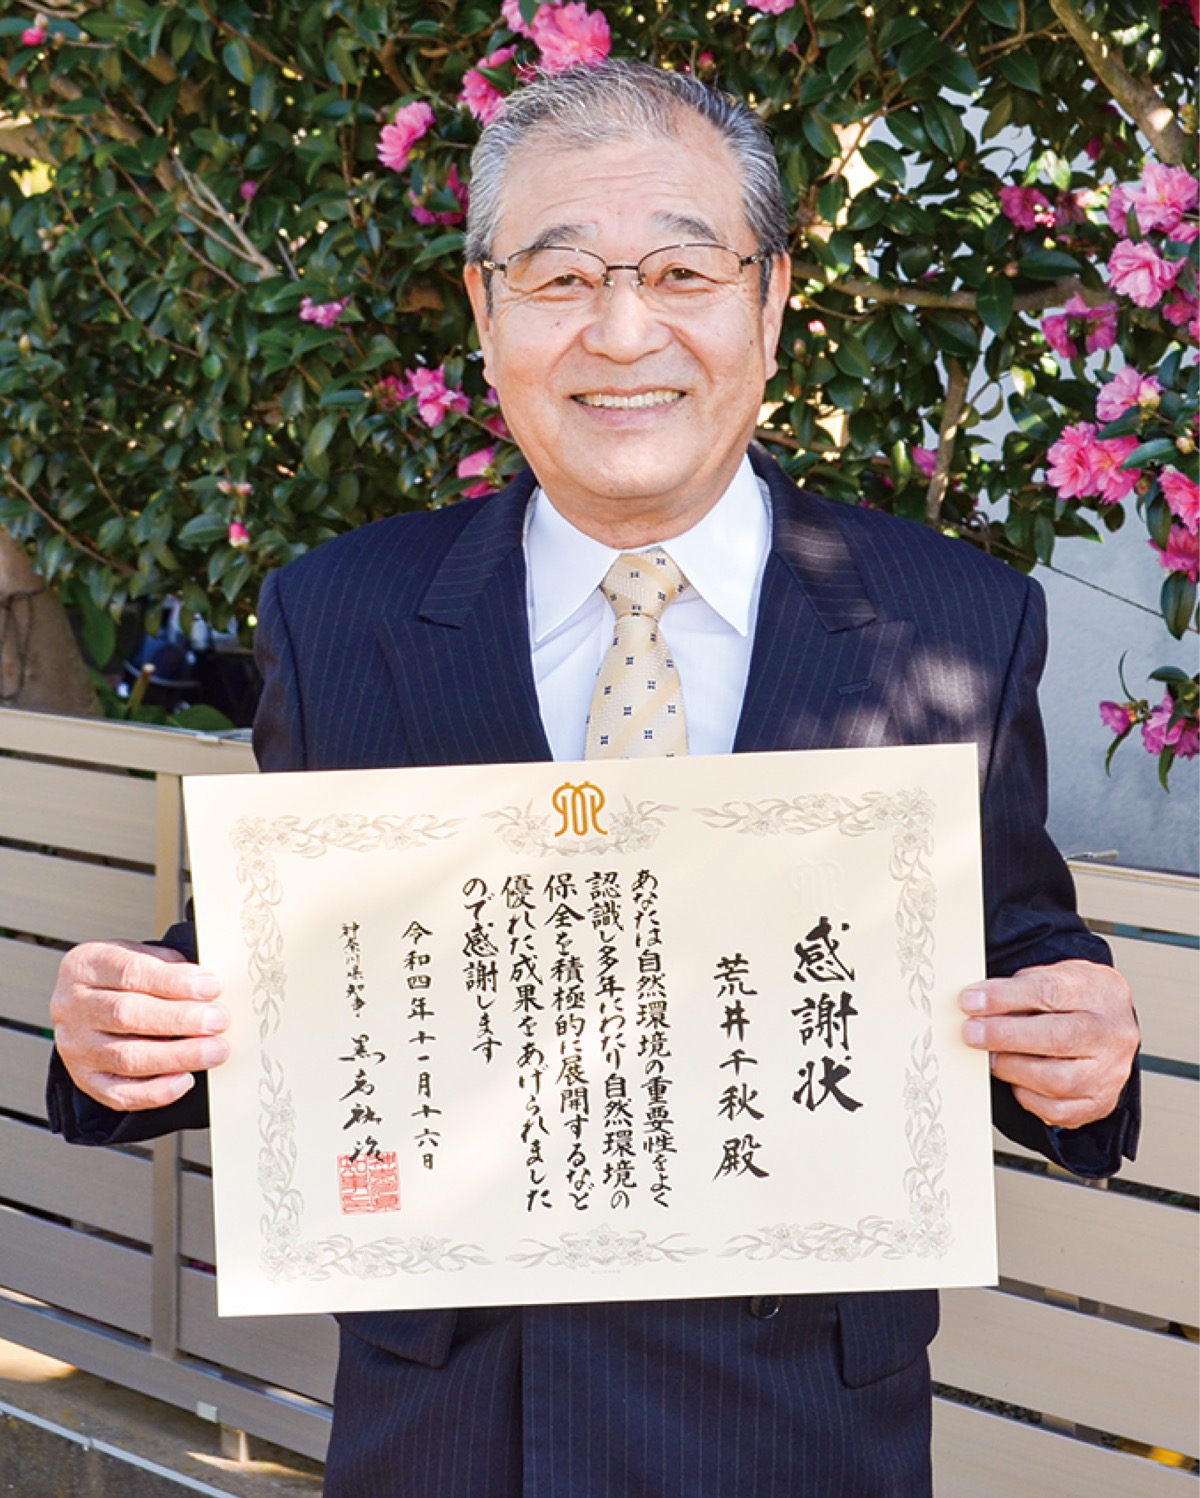 感謝状
荒井千秋殿
あなたは自然環境の重要性をよく
認識し多年にわたり自然環境の
保全を積極的に展開するなど
優れた成果をあげられました
ので感謝します
令和四年十一月十六日
神奈川県知事 黒岩祐治